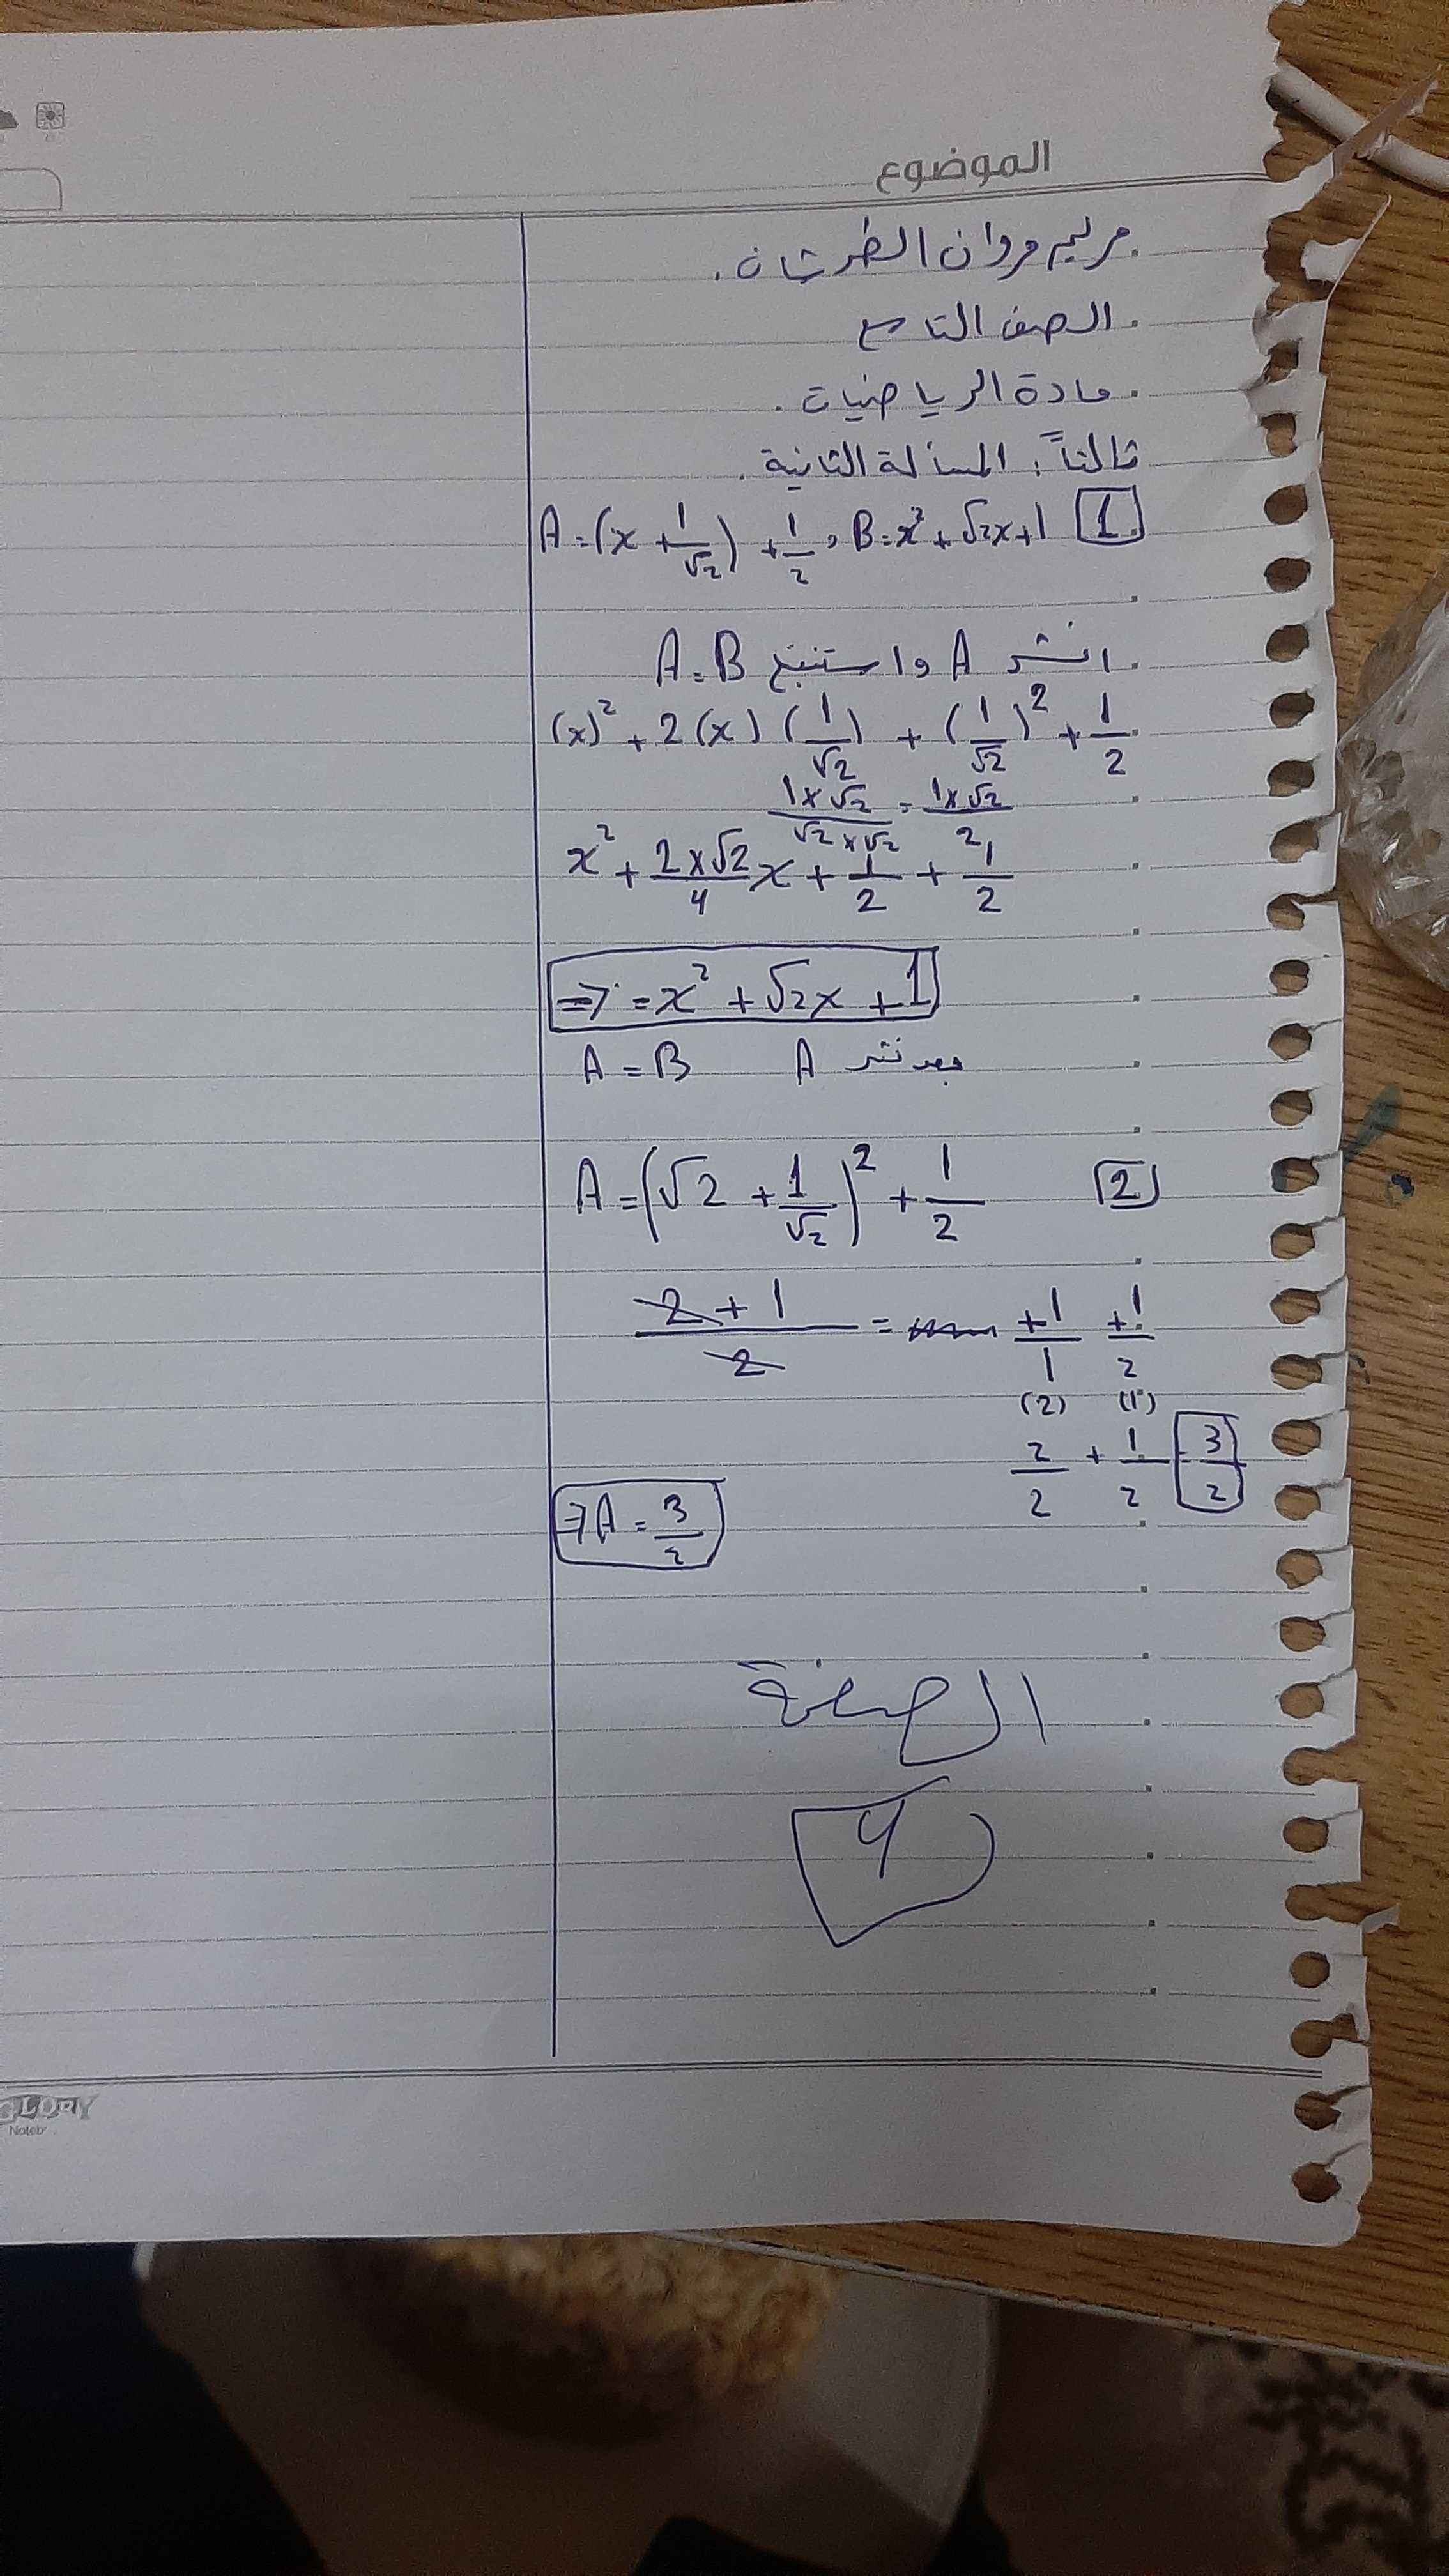 الموضوع
مريم مروان الطرشان.
الصف التاسع
مادة الرياضيات.
ثالثاً: المسألة الثانية.
A=(x+1/√2)+1/2, B=x²+√2x+1 1
انشر A واستنتج A=B
(x)²+2(x)(1/√2)+(1/√2)²+1/2
1×√2/√2×√2=1×√2/2
x²+2×√2/4x+1/2+1/2
=>=x²+√2x+1
A=B بعد نشر A
A=(√2+1/√2)²+1/2 2
2+1/2= +1/1 +1/2
(2) (1)
2/2+1/2 3/2
=>A=3/2
الصفحة
4
GLORY